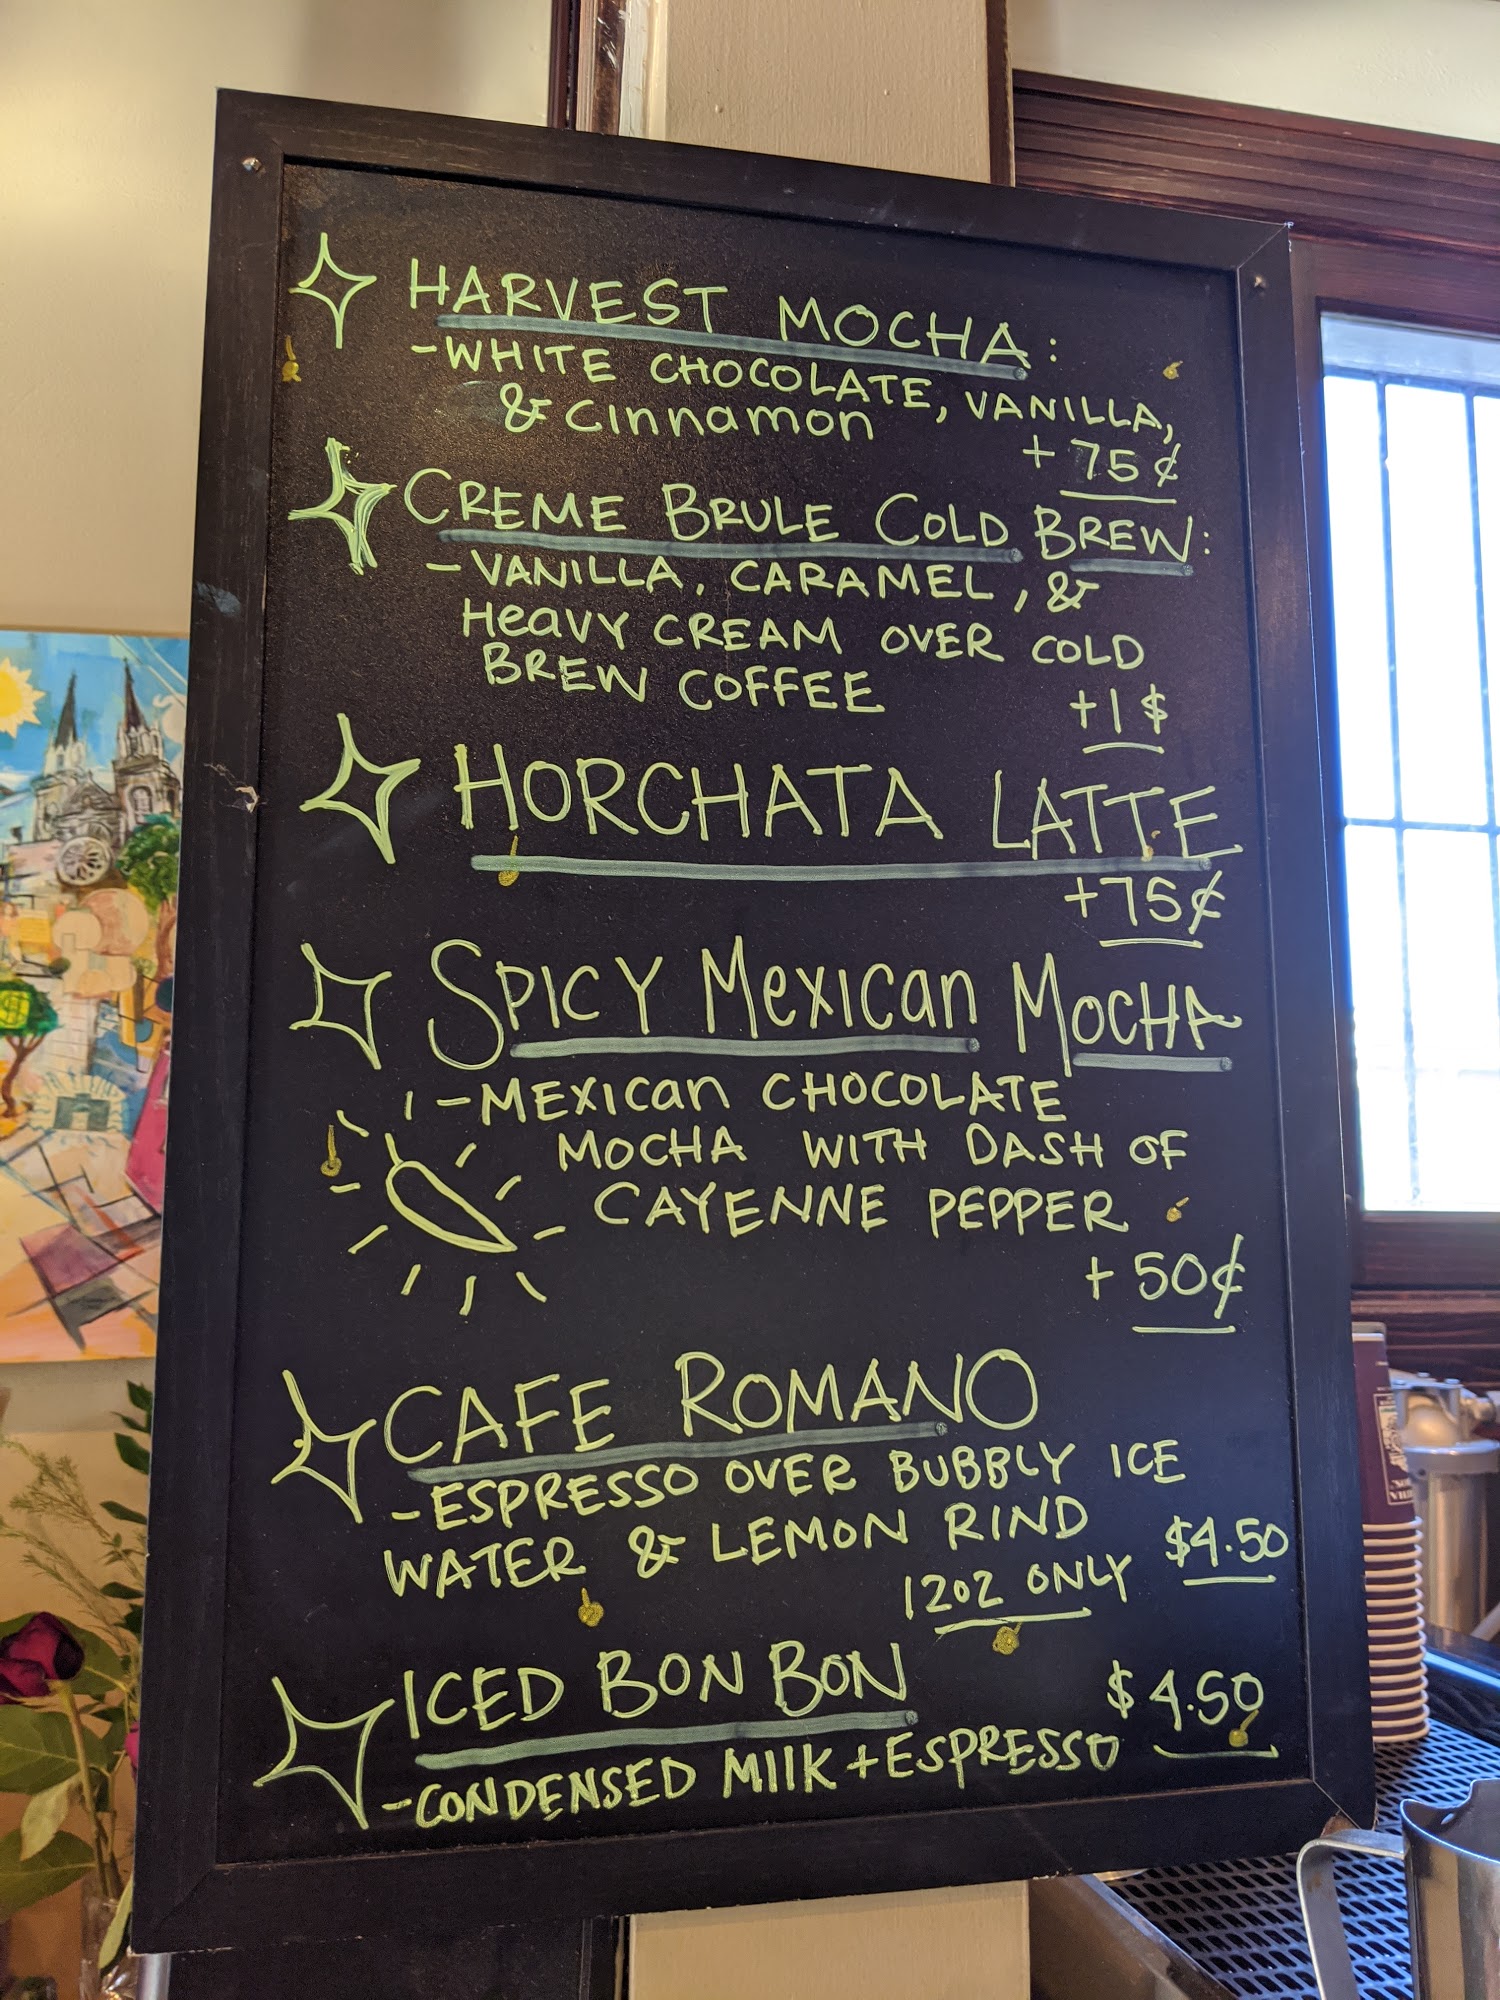 HARVEST MOCHA:
-WHITE CHOCOLATE, VANILLA,
& Cinnamon
+ 75¢
CREME BRULE COLD BREW:
-VANILLA, CARAMEL, &
HeavY CREAM OVER COLD
BREW COFFEE
+1$
HORCHATA LATTE
+75¢
SPICY Mexican MOCHA
-MEXICan CHOCOLATE
MOCHA WITH DASH OF
CAYENNE PEPPER
+ 50¢
CAFE ROMANO
-ESPRESSO OVER BUBBLY ICE
WATER & LEMON RIND
$4.50
12oz ONLY
ICED BON BON
$4.50
-CONDENSED MIlK + ESPRESSO